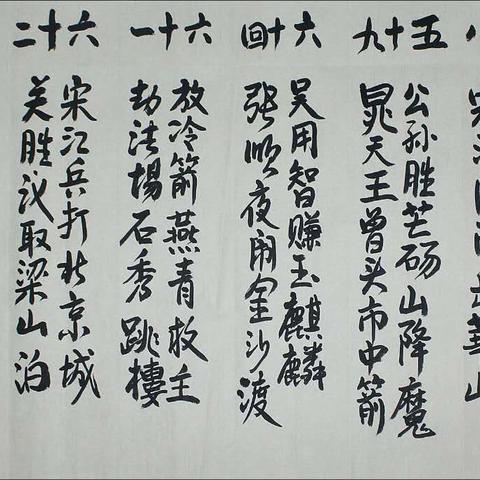 五十九
公孙胜芒砀山降魔
晁天王曾头市中箭
六十回
吴用智赚玉麒麟
张顺夜闹金沙渡
六十一
放冷箭燕青救主
劫法場石秀跳樓
六十二
宋江兵打北京城
关胜议取梁山泊